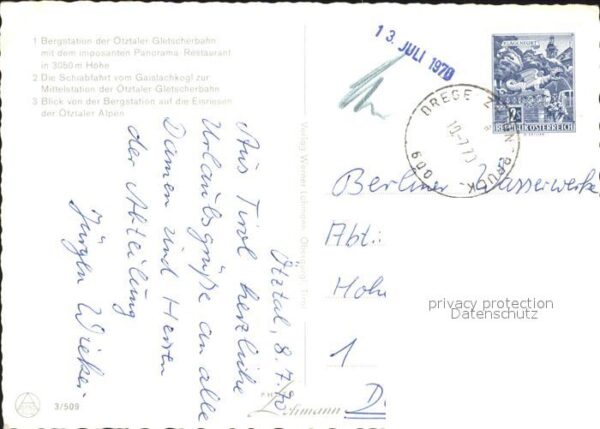 1 Bergstation der Ötztaler Gletscherbahn
mit dem imposanten Panorama-Restaurant
in 3050 m Höhe
2 Die Schiabfahrt vom Gaislachkogl zur
Mittelstation der Ötztaler Gletscherbahn
3 Blick von der Bergstation auf die Eisriesen
der Ötztaler Alpen
13. JULI 1970
KLAGENFURT
S 2
REPUBLIK ÖSTERREICH
10.-7.70
Ötztal, 8.7.70
Aus Tirol herzliche
Urlaubsgrüße an alle
Damen und Herren
der Abteilung
Jürgen Wieker
Verlag Werner Lohmann, Obergurgl, Tirol
Berliner-Wasserwerke
Abt.:
Hohe
1
D.
privacy protection
Datenschutz
3/509
Lohmann